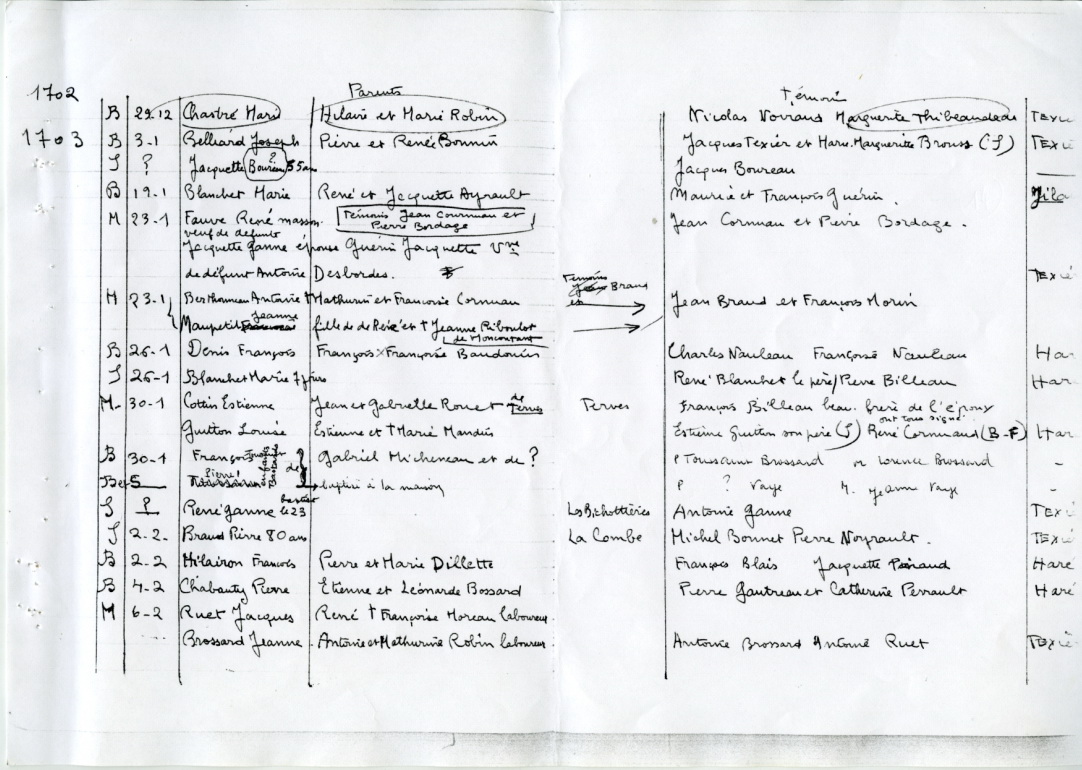 1702
Parents
Témoin
B 29.12 Chastré Marie Hilaire et Marie Robin Nicolas Vorrand Marguerite Thibeaudeau TEXI
1703 B 3-1 Belliard Joseph Pierre et René Bonnin Jacques Texier et Marie-Marguerite Brouss (S) TEXI
S ? Jacquette Boureau ? 55 ans Jacques Boureau
B 19-1 Blanchet Marie René et Jacquette Ayrault Maurice et François Guérin. Jila
M 23-1 Fauve René masson. Témoins Jean Cornuau et Jean Cornuau et Pierre Bordage.
veuf de défunte Pierre Bordage
Jacquette Ganne épouse Guérin Jacquette Vve
de défunt Antoine Desbordes. TEXIÉ
Témoins Braud
M 23-1 Berthonneau Antoine † Mathurin et Françoise Cornuau et Jean Braud et François Morin
Maupetit Jeanne fille de René et † Jeanne Riboulot
de Moncoutant
B 26-1 Denis François François x Françoise Baudouin Charles Nauleau Françoise Nauleau Har
S 26-1 Blanchet Marie 7 jours René Blanchet le père / Pierre Billeau Hare
M- 30-1 Cottin Estienne Jean et Gabrielle Rouet de Terves Terves François Billeau beau frère de l'époux
ont tous signé
Guitton Louise Estienne et † Marie Mandin Estienne Guitton son père (S) René Cornuaud (B-F) Har
B 30-1 François de Gabriel Micheneau et de ? P Toussaint Brossard m Lorence Brossard -
Pierre
5 baptisé à la maison P ? Vaye M. Jeanne Vaye -
S ? René Ganne le 23 Les Bichottières Antoine Ganne TEXI
S 2-2- Braud Pierre 80 ans La Combe Michel Bonnet Pierre Noyrault. TEXI
B 2-2 Hilairon François Pierre et Marie Dillette François Blais Jacquette Painaud Haré
B 4-2 Chabauty Pierre Etienne et Léonarde Bossard Pierre Gautreau et Catherine Perrault Haré
M 6-2 Ruet Jacques René † Françoise Moreau laboureur
Brossard Jeanne Antoine et Mathurine Robin laboureur Antoine Brossard Antoine Ruet TEXIÉ